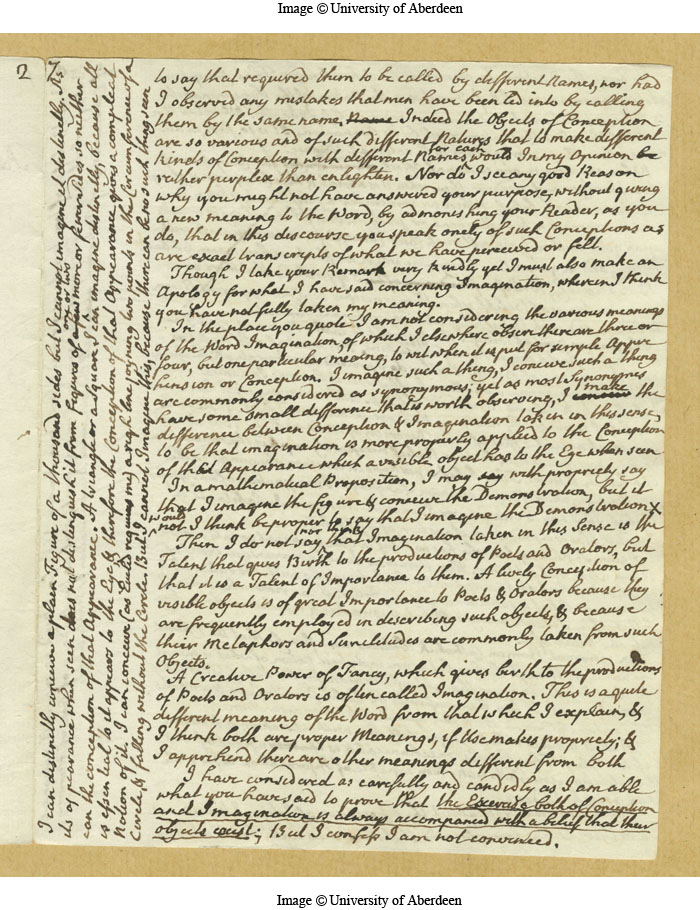 Image © University of Aberdeen
2
to say that required them to be called by different Names, nor had
I observed any mistakes that men have been led into by calling
them by the same name. Indeed the Objects of Conception
are so various and of such different Natures that to make different
kinds of Conception with different Names for each would in my Opinion
rather perplex than enlighten. Nor do I see any good Reason
why you might not have answered your purpose, without giving
a new meaning to the Word, by admonishing your Reader, as you
do, that in this discourse you speak onely of such Conceptions as
are exact transcripts of what we have perceived or felt.
Though I take your Remark very kindly yet I must also make an
Apology for what I have said concerning Imagination, wherein I think
you have not fully taken my meaning.
In the place you quote I am not considering the various meanings
of the Word Imagination of which I elsewhere observe there are three or
four, but one particular meaning, to wit when it is put for simple Appre
hension or Conception. I imagine such a thing, I conceive such a thing
are commonly considered as synonymous; yet as most Synonymes
have some small difference that is worth observing, I make the
difference between Conception & Imagination taken in this sense,
to be that imagination is more properly applied to the Conception
of that Appearance which a visible object has to the Eye when seen
In a mathematical Proposition, I may say with propriety say
that I imagine the figure & conceive the Demonstration, but it
would not I think be proper to say that I imagine the Demonstration X
Then I do not say, nor think that Imagination taken in this Sense is the
Talent that gives Birth to the productions of Poets and Orators, but
that it is a Talent of Importance to them. A lively Conception of
visible objects is of great Importance to Poets & Orators because they
are frequently employed in describing such objects, & because
their Metaphors and Similitudes are commonly taken from such
Objects.
A Creative Power of Fancy, which gives berth to the productions
of Poets and Orators is often called Imagination. This is a quite
different meaning of the Word from that which I explain, &
I think both are proper Meanings, if Use makes propriety; &
I apprehend there are other meanings different from both
I have considered as carefully and candidly as I am able
what you have said to prove that the Exercise both of Conception
and Imagination is always accompanied with a belief that their
objects exist; But I confess I am not convinced.
X
I can distinctly conceive a plain Figure of a thousand sides but I cannot imagine it distinctly. As
its appearance when seen does not distinguish it from Figures of one or two more or fewer sides so neither
can the conception of that Appearance. A triangle or a square I can imagine distinctly, because all
is essential to it appears to the Eye & therefore the Conception of that Appearance gives a compleat
Notion of it. I can conceive (as Euclid me) a right line joyning two points in the Circumference of a
Circle, & falling without the Circle. But I cannot Imagine this, because there can be no such thing seen
Image © University of Aberdeen